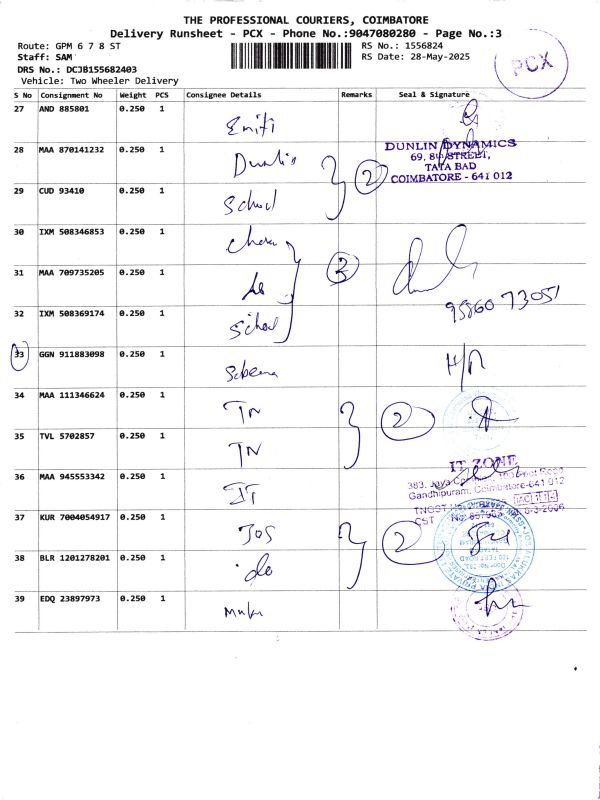 THE PROFESSIONAL COURIERS, COIMBATORE
Delivery Runsheet - PCX - Phone No.:9047080280 - Page No.:3
Route: GPM 6 7 8 ST
RS No.: 1556824
Staff: SAM
RS Date: 28-May-2025
PCX
DRS No.: DCJB155682403
Vehicle: Two Wheeler Delivery
S No Consignment No Weight PCS Consignee Details Remarks Seal & Signature
27 AND 885801 0.250 1
28 MAA 870141232 0.250 1 Dunlin
DUNLIN DYNAMICS
69, 8th STREET,
TATA BAD
COIMBATORE - 641 012
2
29 CUD 93410 0.250 1 School
30 IXM 508346853 0.250 1
31 MAA 709735205 0.250 1 do
3
32 IXM 508369174 0.250 1 School
95860 73051
33 GGN 911883098 0.250 1 H/R
34 MAA 111346624 0.250 1 TN
2
35 TVL 5702857 0.250 1 TN
36 MAA 945553342 0.250 1 IT
IT ZONE
383, Jaya
Gandhipuram, Coimbatore-641 012
37 KUR 7004054917 0.250 1 JOS
2
38 BLR 1201278201 0.250 1 do
39 EDQ 23897973 0.250 1